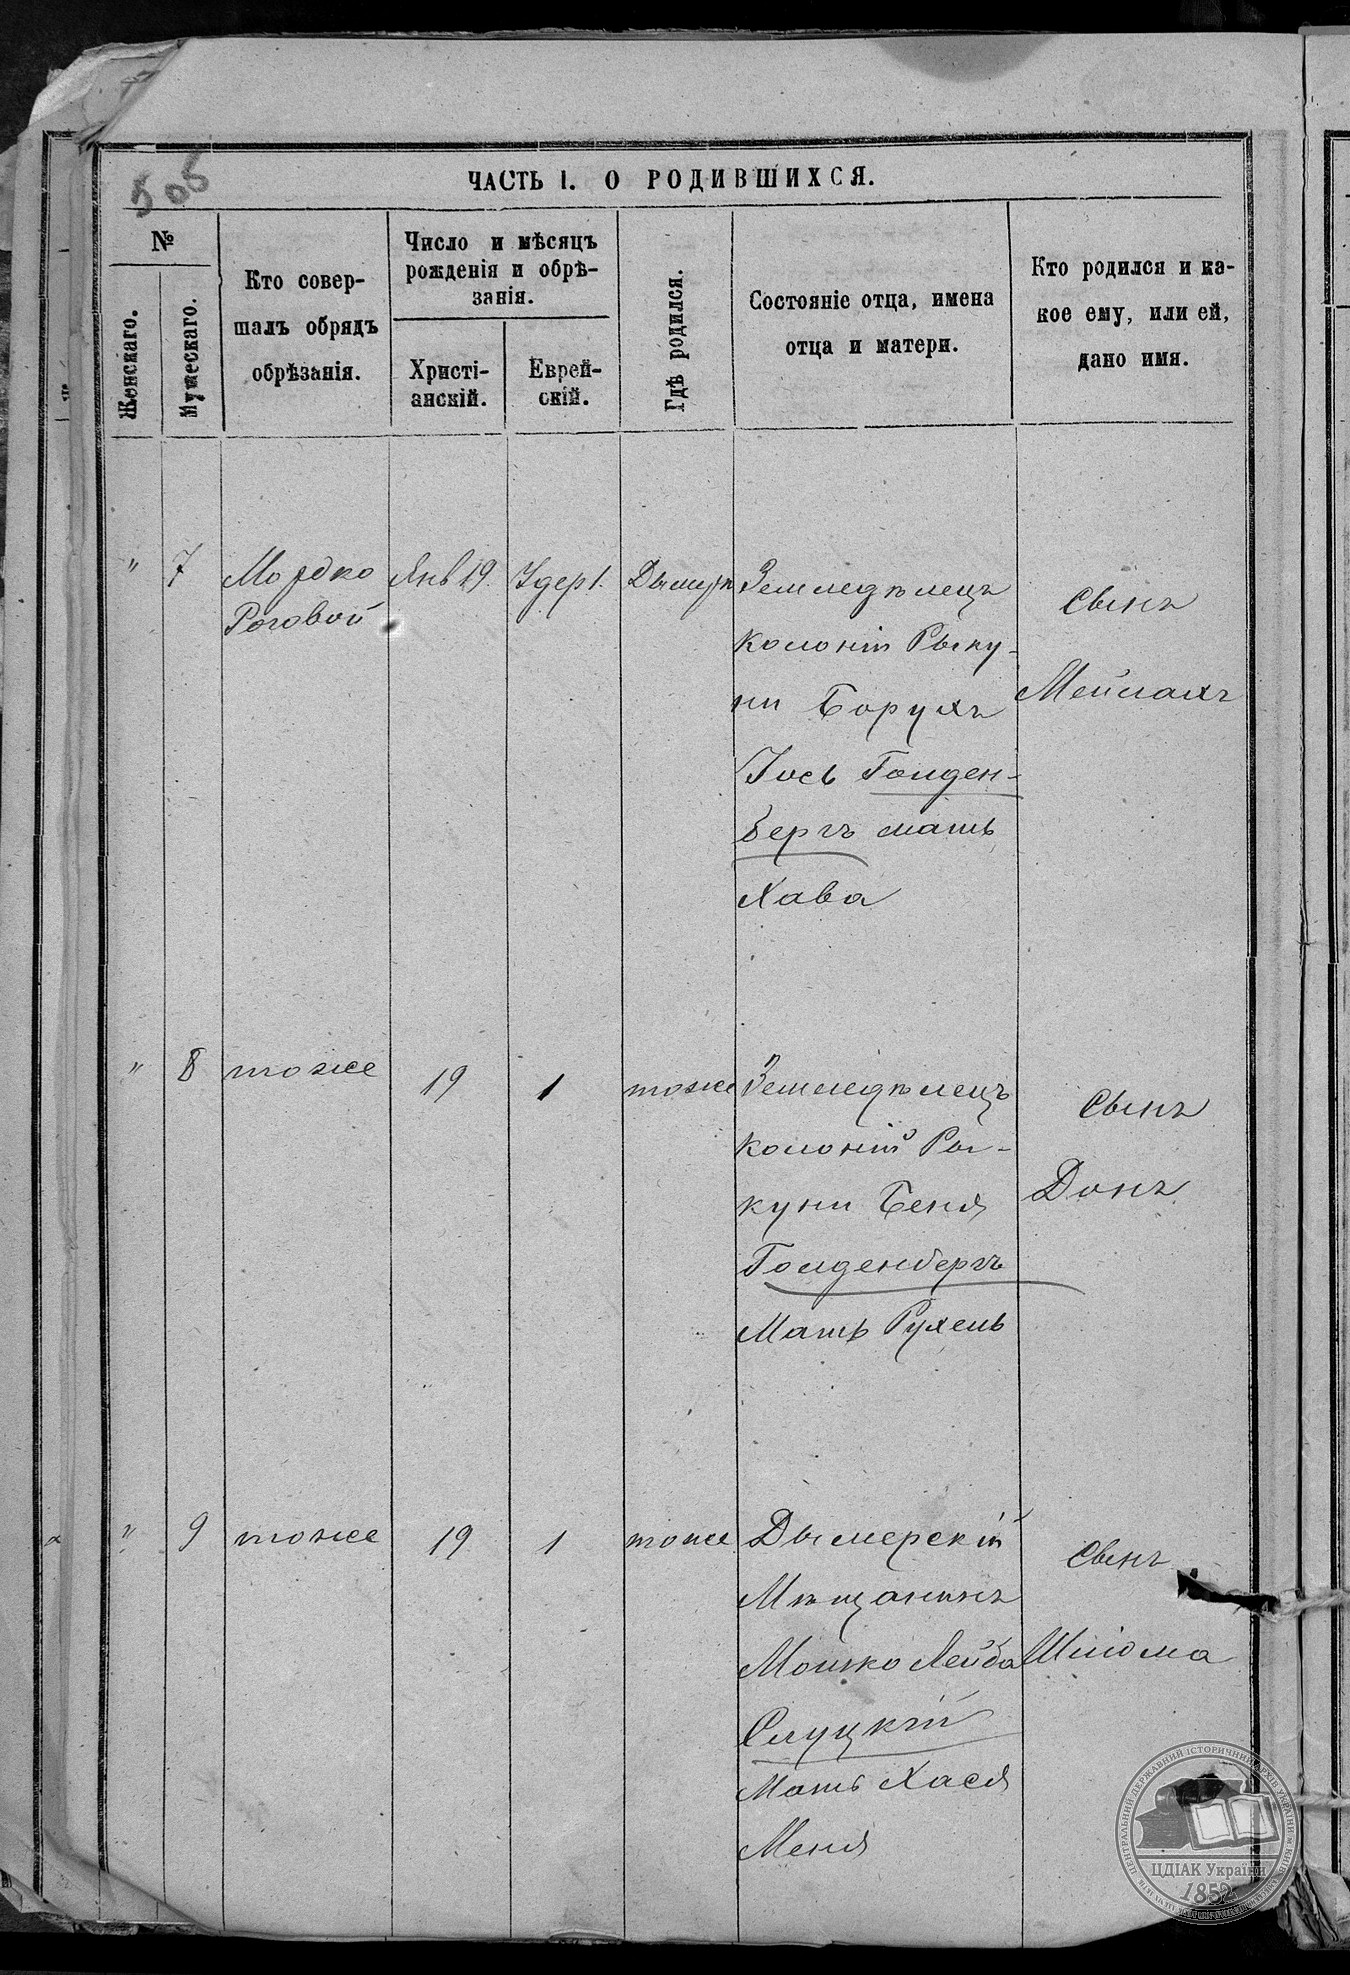 505
ЧАСТЬ I. О РОДИВШИХСЯ.
№
Женскаго.
Мужескаго.
Кто совер-
шалъ обрядъ
обрѣзанія.
Число и мѣсяцъ
рожденія и обрѣ-
занія.
Христі-
анскій.
Еврей-
скій.
Гдѣ родился.
Состояніе отца, имена
отца и матери.
Кто родился и ка-
кое ему, или ей,
дано имя.
" 7
Мордко
Роговой
Янв 19.
Удер 1.
Дымеръ
Земледѣлецъ
колоніи Рыку-
ни Борухъ
Іось Голден-
бергъ мать
Хава
Сынъ
Мейлахъ
" 8
тоже
19
1
тоже
Земледѣлецъ
колоній Ры-
куни Беня
Голденбергъ
Мать Рухель
Сынъ
Донъ
" 9
тоже
19
1
тоже
Дымерскій
Мѣщанинъ
Мошко Лейба
Слуцкій
Мать Хася
Меня
Сынъ
Шліома
ЦЕНТРАЛЬНИЙ ДЕРЖАВНИЙ ІСТОРИЧНИЙ АРХІВ УКРАЇНИ м. КИЇВ
ЦДІАК України
1852